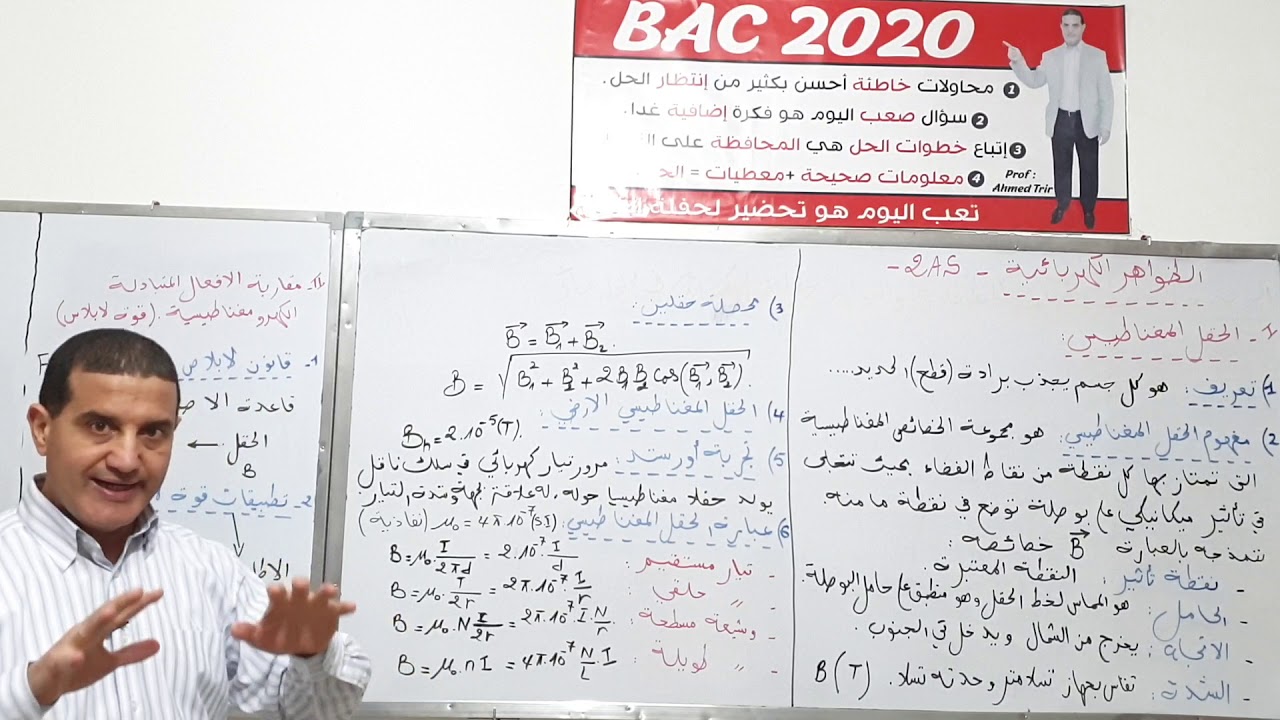 BAC 2020
❶ محاولات خاطئة أحسن بكثير من إنتظار الحل.
❷ سؤال صعب اليوم هو فكرة إضافية غدا.
❸ إتباع خطوات الحل هي المحافظة على
❹ معلومات صحيحة +معطيات =
Prof :
Ahmed Trir
تعب اليوم هو تحضير لحفلة
الظواهر الكهربائية - 2AS -
I- الحقل المغناطيسي:
1) تعريف: هو كل جسم يجذب برادة (قطع) الحديد.....
2) مفهوم الحقل المغناطيسي: هو مجموعة الخصائص المغناطيسية
التي تمتاز بها كل نقطة من نقاط الفضاء بحيث تتجلى
في تأثير ميكانيكي على بوصلة توضع في نقطة ما منه
نتمذجه بالعبارة B⃗ خصائصه:
- نقطة تأثير: النقطة المعتبرة.
- الحامل: هو المماس لخط الحقل وهو منطبق على حامل البوصلة
- الاتجاه: يخرج من الشمال ويدخل في الجنوب.
- الشدة: تقاس بجهاز تسلامتر وحدته تسلا. B(T)
3) محصلة حقلين:
B⃗ = B⃗₁ + B⃗₂.
B = √(B₁² + B₂² + 2B₁B₂ cos(B⃗₁, B⃗₂)).
4) الحقل المغناطيسي الأرضي:
Bh = 2.10⁻⁵(T).
5) تجربة أورستد: مرور تيار كهربائي في سلك ناقل
يولد حقلا مغناطيسيا حوله، له علاقة بجهة وشدة التيار
6) عبارة الحقل المغناطيسي: μ₀ = 4π.10⁻⁷(SI) (نفاذية)
- تيار مستقيم: B = μ₀.I/2πd = 2.10⁻⁷ I/d
- " حلقي: B = μ₀.I/2r = 2π.10⁻⁷ I/r
- وشيعة مسطحة: B = μ₀.N I/2r = 2π.10⁻⁷.I.N/r
- " طويلة: B = μ₀.n I = 4π.10⁻⁷ N/L.I
II- مقاربة الافعال المتبادلة
الكهرومغناطيسية. (قوة لابلاس)
1- قانون لابلاص F
قاعدة
الحقل ←
B
2- تطبيقات قوة